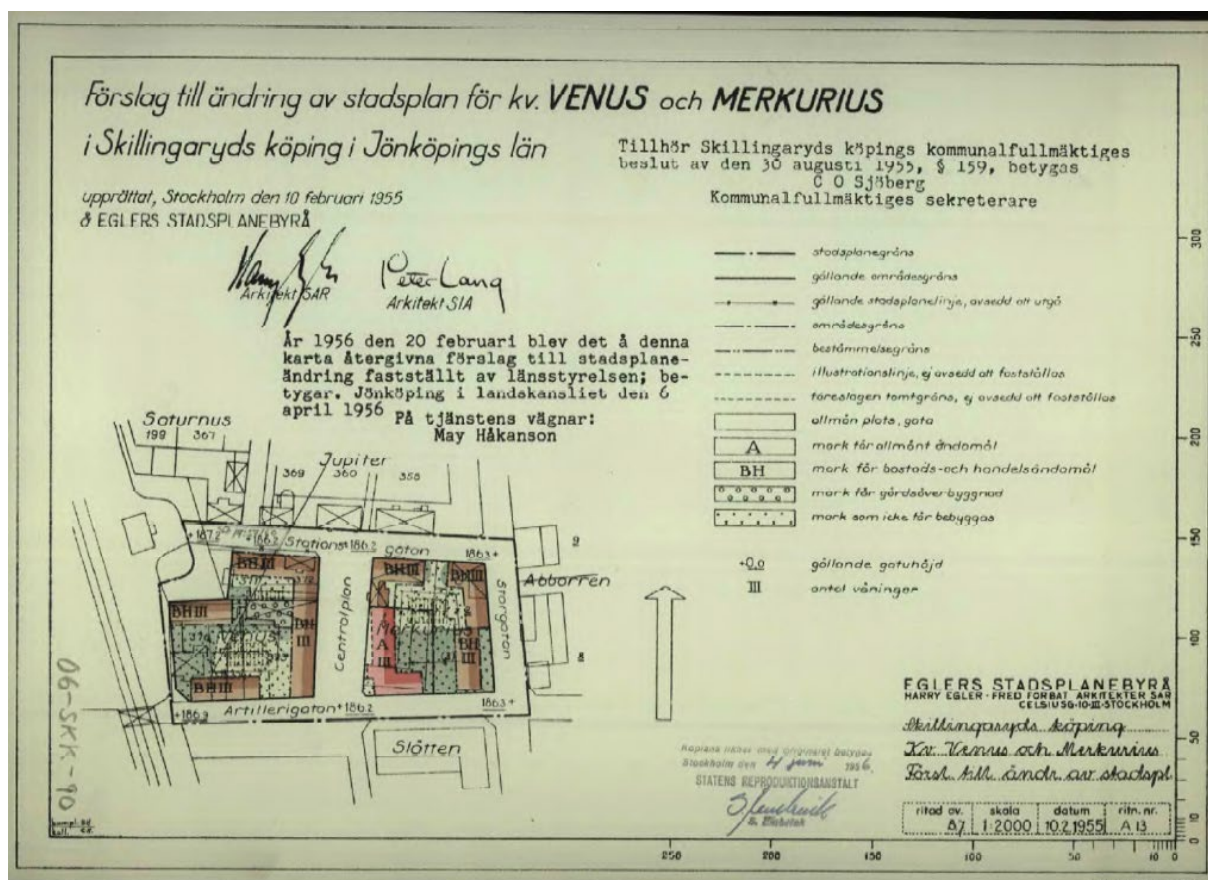 Förslag till ändring av stadsplan för kv. VENUS och MERKURIUS
i Skillingaryds köping i Jönköpings län
upprättat, Stockholm den 10 februari 1955
å EGLERS STADSPLANEBYRÅ
Arkitekt SAR
Peter Lang
Arkitekt SIA
Tillhör Skillingaryds köpings kommunalfullmäktiges
beslut av den 30 augusti 1955, § 159, betygas
C O Sjöberg
Kommunalfullmäktiges sekreterare
År 1956 den 20 februari blev det å denna
karta återgivna förslag till stadsplane-
ändring fastställt av länsstyrelsen; be-
tygar. Jönköping i landskansliet den 6
april 1956
På tjänstens vägnar:
May Håkanson
stadsplanegräns
gällande områdesgräns
gällande stadsplanelinje, avsedd att utgå
områdesgräns
bestämmelsegräns
illustrationslinje, ej avsedd att fastställas
föreslagen tomtgräns, ej avsedd att fastställas
allmän plats, gata
A mark för allmänt ändamål
BH mark för bostads- och handelsändamål
mark för gårdsöverbyggnad
mark som icke får bebyggas
+0.0 gällande gatuhöjd
III antal våningar
Saturnus
199 367
Jupiter
369 360 358
+187.2 +186.2 Stations +186.2 gatan 186.3+
BH III BH III BH III
BH III
Venus
BH III
BH III
Centralplan
Merkurius
A III
BH III
Storgatan
Abborren
9
8
+186.9 Artillerigatan +186.2 186.3+
Slätten
06-SKK-90
Kopians likhet med originalet betygas
Stockholm den 4 juni 1956
STATENS REPRODUKTIONSANSTALT
EGLERS STADSPLANEBYRÅ
HARRY EGLER - FRED FORBAT ARKITEKTER SAR
CELSIUSG·10·III·STOCKHOLM
Skillingaryds köping
Kv. Venus och Merkurius
Försl. till ändr. av stadspl
ritad av. skala datum ritn. nr.
1:2000 10.2.1955 A 13
300
250
200
150
100
50
10
0
250 200 150 100 50 10 0